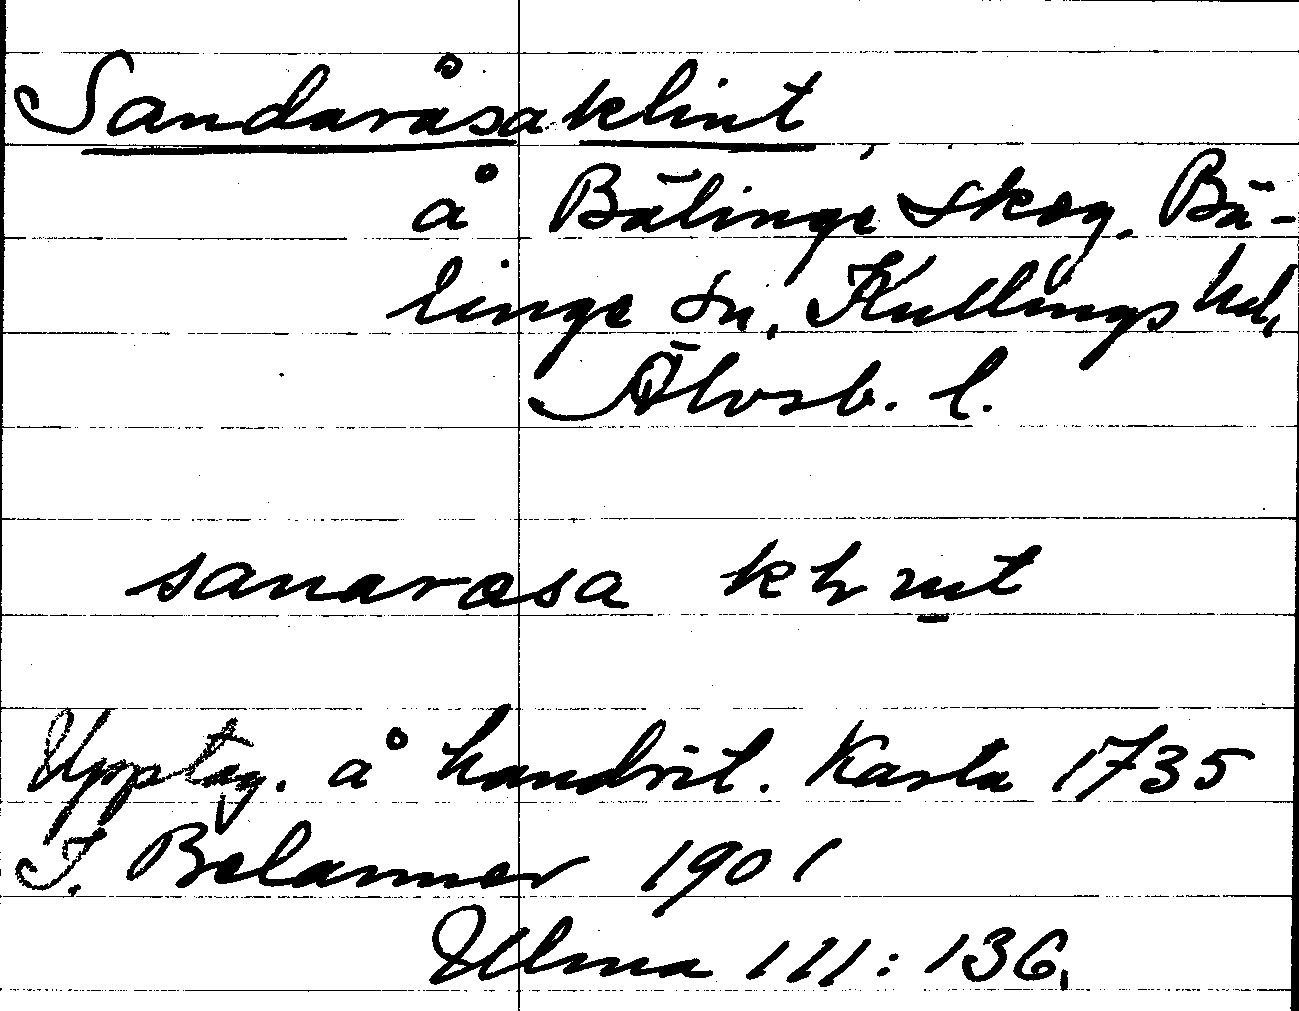 Sandaråsa klint,
å Bälinge skog. Bä-
linge sn, Kullings hd,
Älvsb. l.
sanarasa
Upptag. å handrit. Karta 1735
J. Belanner 1901
Ulma 111:136.